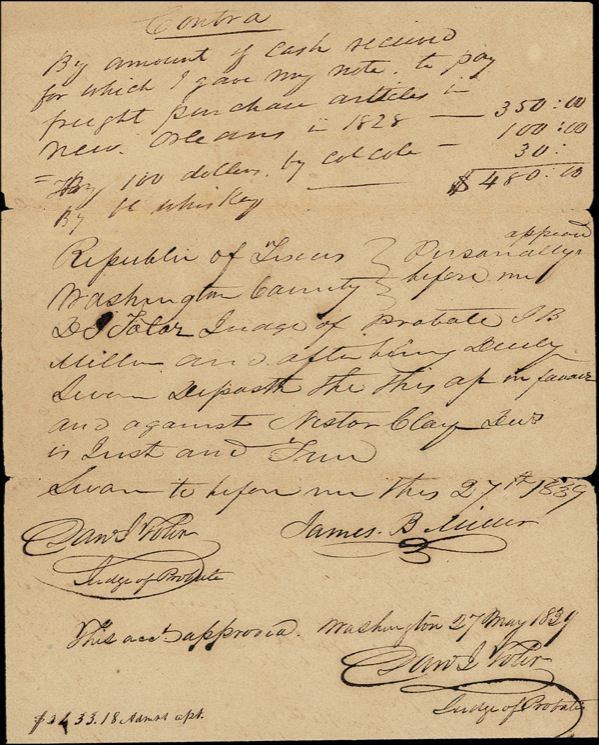 Contra
By amount of cash received
for which I gave my note, to pay
freight purchase articles in
New. Orleans in 1828 — 350:00
= By 100 dollars. by Col Cole — 100:00
By bl whiskey — 30:
$480:00
Republic of Texas } Personally appeard
Washington County } before me
D J Toler Judge of Probate J B
Miller and after being Duely
Swan Deposeth the this ap in favour
and against Nestor Clay Decd
is Just and True
Swan to before me this 27th 1839
Danl J Toler James. B Miller
Judge of Probate
This acct approved. Washington 27 May 1839
Danl J Toler
Judge of Probate
$3433.18 Admrs apt.